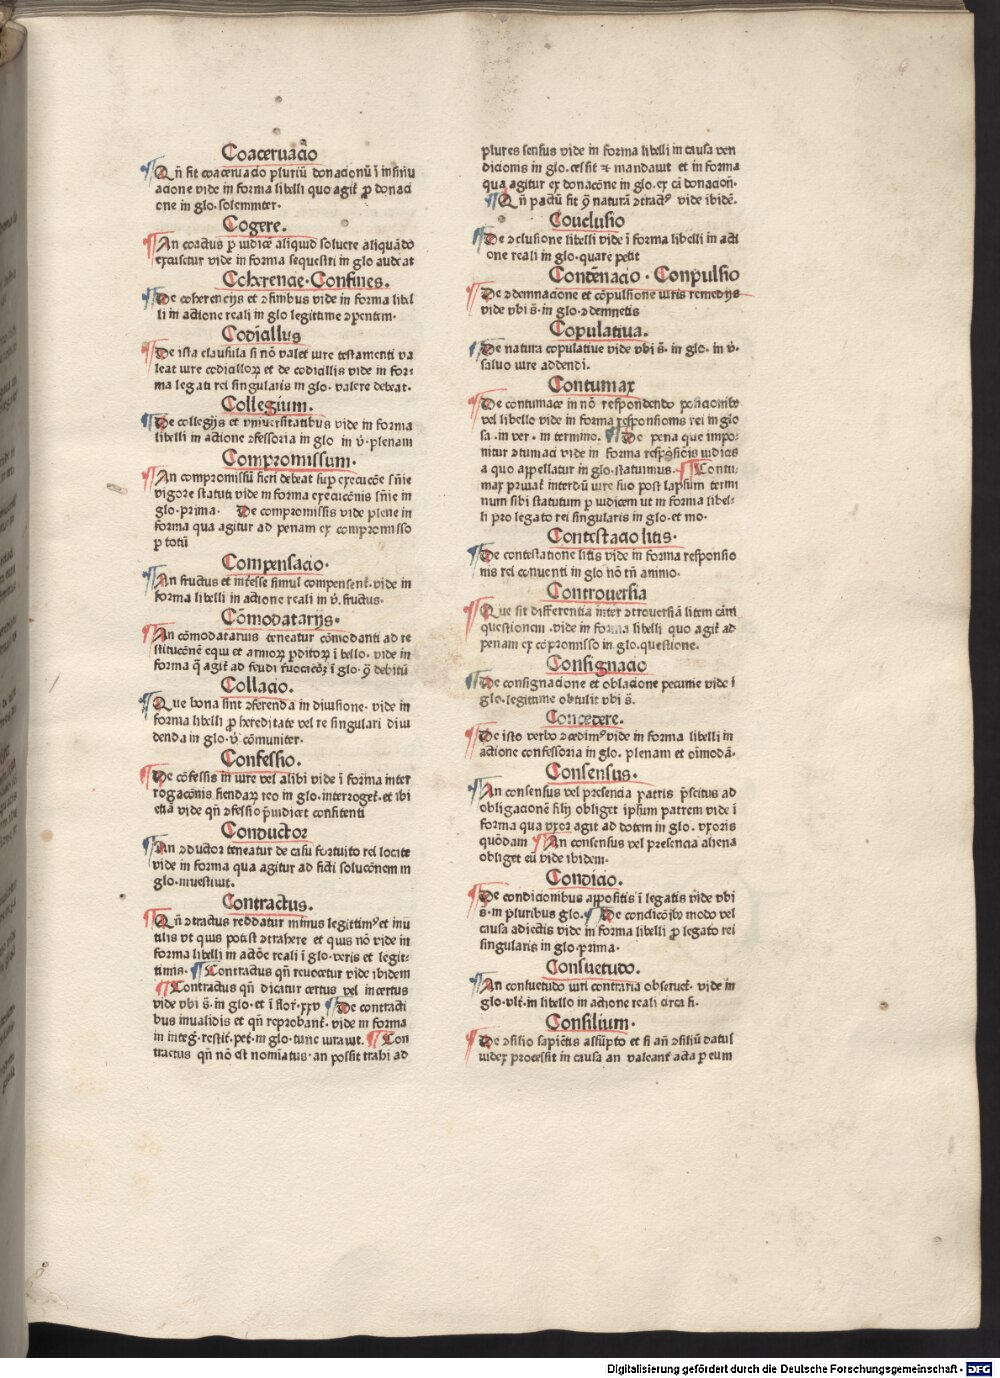 Coaceruacio
Qn̄ fit coaceruacio pluriū donacionū ī insinu
acione vide in forma libelli quo agit̄ ꝓ donaci
one in glo· solemniter·
Cogere.
An coactus ꝑ iudicē aliquid soluere aliquādo
excusetur vide in forma sequestri in glo audeat
Coherencie · Confines.
De coherencijs et ꝯfinibus vide in forma libel
li in actione reali in glo legittime ꝯparentem·
Codicillus
De ista clausula si nō valet iure testamenti va
leat iure codicilloꝝ et de codicillis vide in for⸗
ma legati rei singularis in glo· valere debeat·
Collegium.
De collegijs et vniuersitatibus vide in forma
libelli in actione ꝯfessoria in glo in v̄· plenam
Compromissum·
An compromissū fieri debeat sup̱ execucōe sn̄ie
vigore statuti vide in forma execucōnis sn̄ie in
glo· prima· De compromissis vide plene in
forma qua agitur ad penam ex compromisso
ꝑ totū
Compensacio·
An fructus et int̄esse simul compensent̄· vide in
forma libelli in actione reali in v̄. fructus·
Cōmodatarijs·
An cōmodatarius teneatur cōmodanti ad re
stitucōnē equi et armoꝝ ꝑditoꝝ ī bello· vide in
forma q̄ agit̄ ad feudi r̄uocacōeꝫ ī glo· ꝙ debitū
Collacio.
Que bona sint ꝯferenda in diuisione· vide in
forma libelli ꝓ hereditate vel re singulari diui
denda in glo· v̄ cōmuniter·
Confessio.
De cōfessis in iure vel alibi vide ī forma inter
rogacōnis fiendaꝝ reo in glo· interroget̄· et ibi
eciā vide qn̄ ꝯfessio p̄iudicet confitenti
Conductor
An ꝯductor teneatur de casu fortuito rei locate
vide in forma qua agitur ad ficti solucōnem in
glo· inuestiuit·
Contractus.
Qn̄ ꝯtractus reddatur minus legittimꝰ et inu
tilis vt quis potest ꝯtrahere et quis nō vide in
forma libelli in actōe reali ī glo· veris et legit⸗
timis· Contractus qn̄ reuocetur vide ibidem
Contractus qn̄ dicatur certus vel incertus
vide vbi s̄· in glo· et ī flor̄· xxv De contracti
bus inualidis et qn̄ reprobant̄· vide in forma
in inteḡ· restit̄· pet̄· in glo· tunc iurauit. Con
tractus qn̄ nō est nomīatus · an possit trahi ad
plures sensus vide in forma libelli in causa ven
dicionis in glo. cessit ⁊ mandauit et in forma
qua agitur ex donacōne in glo. ex cā donacion̄·
Qn̄ pactū sit ꝯ̄ naturā ꝯtractꝰ vide ibidē.
Conclusio
De ꝯclusione libelli vide ī forma libelli in acti
one reali in glo· quare petit
Condēnacio · Conpulsio
De ꝯdemnacione et cōpulsione iuris remedijs
vide vbi s̄· in glo· ꝯdemnetis
Copulatiua.
De natura copulatiue vide vbi s̄. in glo. in v̄·
saluo iure addendi.
Contumax
De contumace in nō respondendo posicionibꝰ
vel libello vide in forma responsionis rei in glo
sa . in ver · in termino. De pena que impo⸗
nitur ꝯtumaci vide in forma respōsiōis iudicis
a quo appellatur in glo· statuimus· Contu⸗
max priuat̄ interdū iure suo post lapsum termi
num sibi statutum ꝑ iudicem ut in forma libel⸗
li pro legato rei singularis in glo· et mo·
Contestacio litis·
De contestatione litis vide in forma responsio
nis rei conuenti in glo nō tn̄ animo·
Controuersia
Que sit differentia inter ꝯtrouersiā litem cām
questionem · vide in forma libelli quo agit̄ ad
penam ex cōpromisso in glo. questione.
Consignacio
De consignacione et oblacione pecunie vide ī
glo. legittime obtulit vbi s̄.
Concedere.
De isto verbo ꝯcedimꝰ vide in forma libelli in
actione confessoria in glo. plenam et oīmodā·
Consensus·
An consensus vel presencia patris p̄scitus ad
obligacionē filij obliget ipsum patrem vide ī
forma qua vxor agit ad dotem in glo. vxoris
quōdam An consensus vel presencia aliena
obliget eū vide ibidem·
Condicio.
De condicionibus appositis ī legatis vide vbi
s̄· in pluribus glo. De condicōibꝰ modo vel
causa adiectis vide in forma libelli ꝓ legato rei
singularis in glo· prima·
Consuetudo.
An consuetudo iuri contraria obseruet̄· vide in
glo· vlt̄· in libello in actione reali circa fi·
Consilium·
De ꝯsilio sapiētis assūpto et si an̄ ꝯsiliū datū
iudex processit in causa an valeant acta ꝑ eum
Digitalisierung gefördert durch die Deutsche Forschungsgemeinschaft - DFG